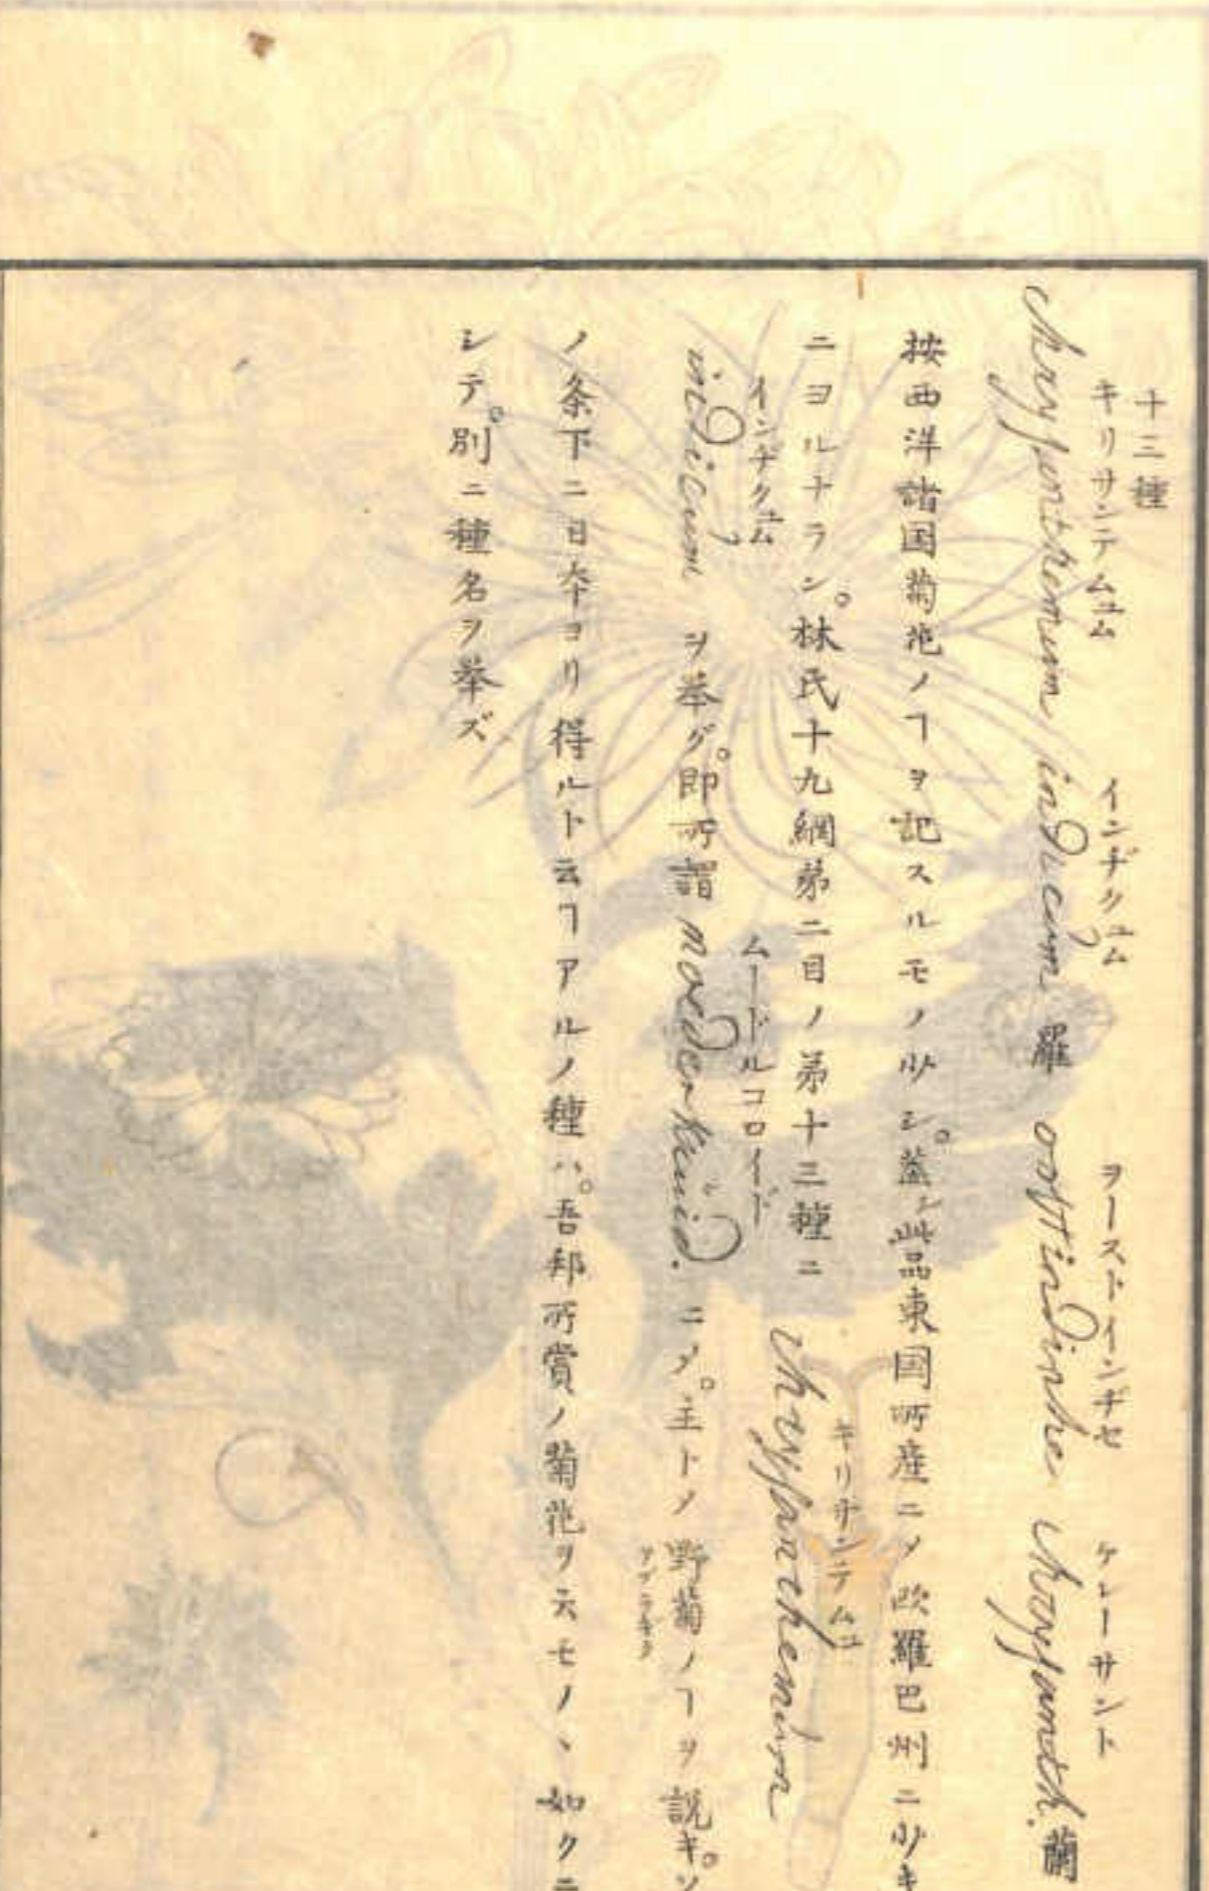 十三種
キリサンテムユム インヂクユム ヲーストインヂセ ケレーサント
chrysanthemum indicum 羅 oostindische chrysanth. 蘭
按西洋諸国菊花ノヿヲ記スルモノ少シ。蓋シ此品東国所産ニノ欧羅巴州ニ少キ
ニヨルナラン。林氏十九綱第二目ノ第十三種ニ chrysanthemum
キリサンテムユ
インヂクユム ムードルコロイド
indicum ヲ挙グ。即所謂 moederkruid. ニノ。主トノ野菊ノヿヲ説キ。ソ
アブラギク
ノ条下ニ日本ヨリ得ルト云ヿアルノ種ハ。吾邦所賞ノ菊花ヲ云モノヽ如クニ
シテ。別ニ種名ヲ挙ズ